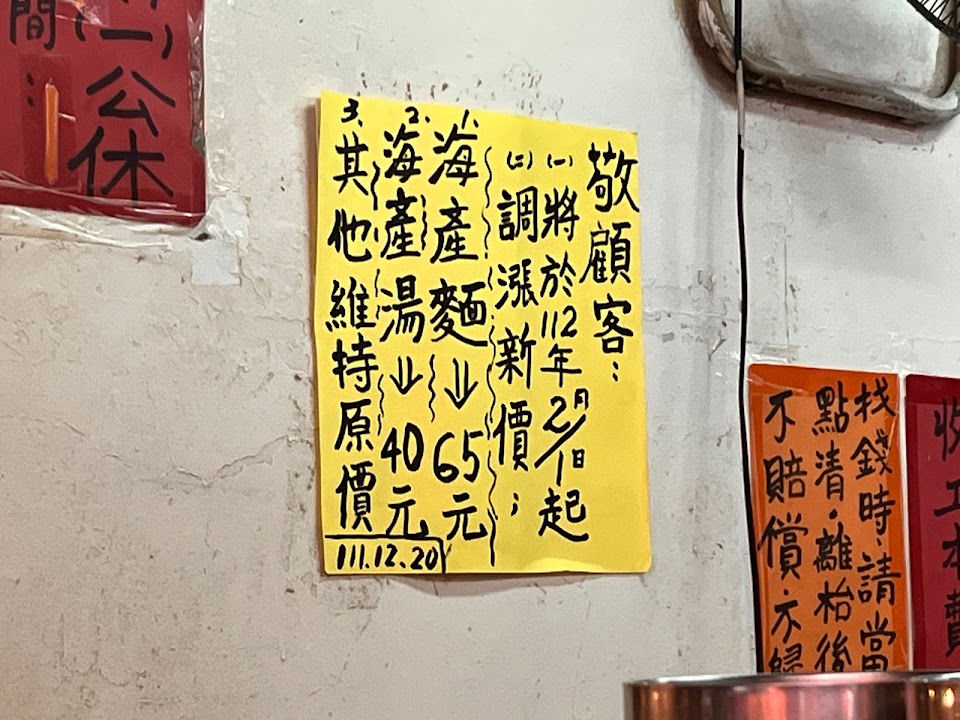 敬顧客：
(一)將於112年2月/1日起
(二)調漲新價；
1.海產麵→65元
2.海產湯→40元
3.其他維持原價
111.12.20
(一)公休
間：
找錢時、請當
點清。離枱後
不賠償、亦歸
收工本費